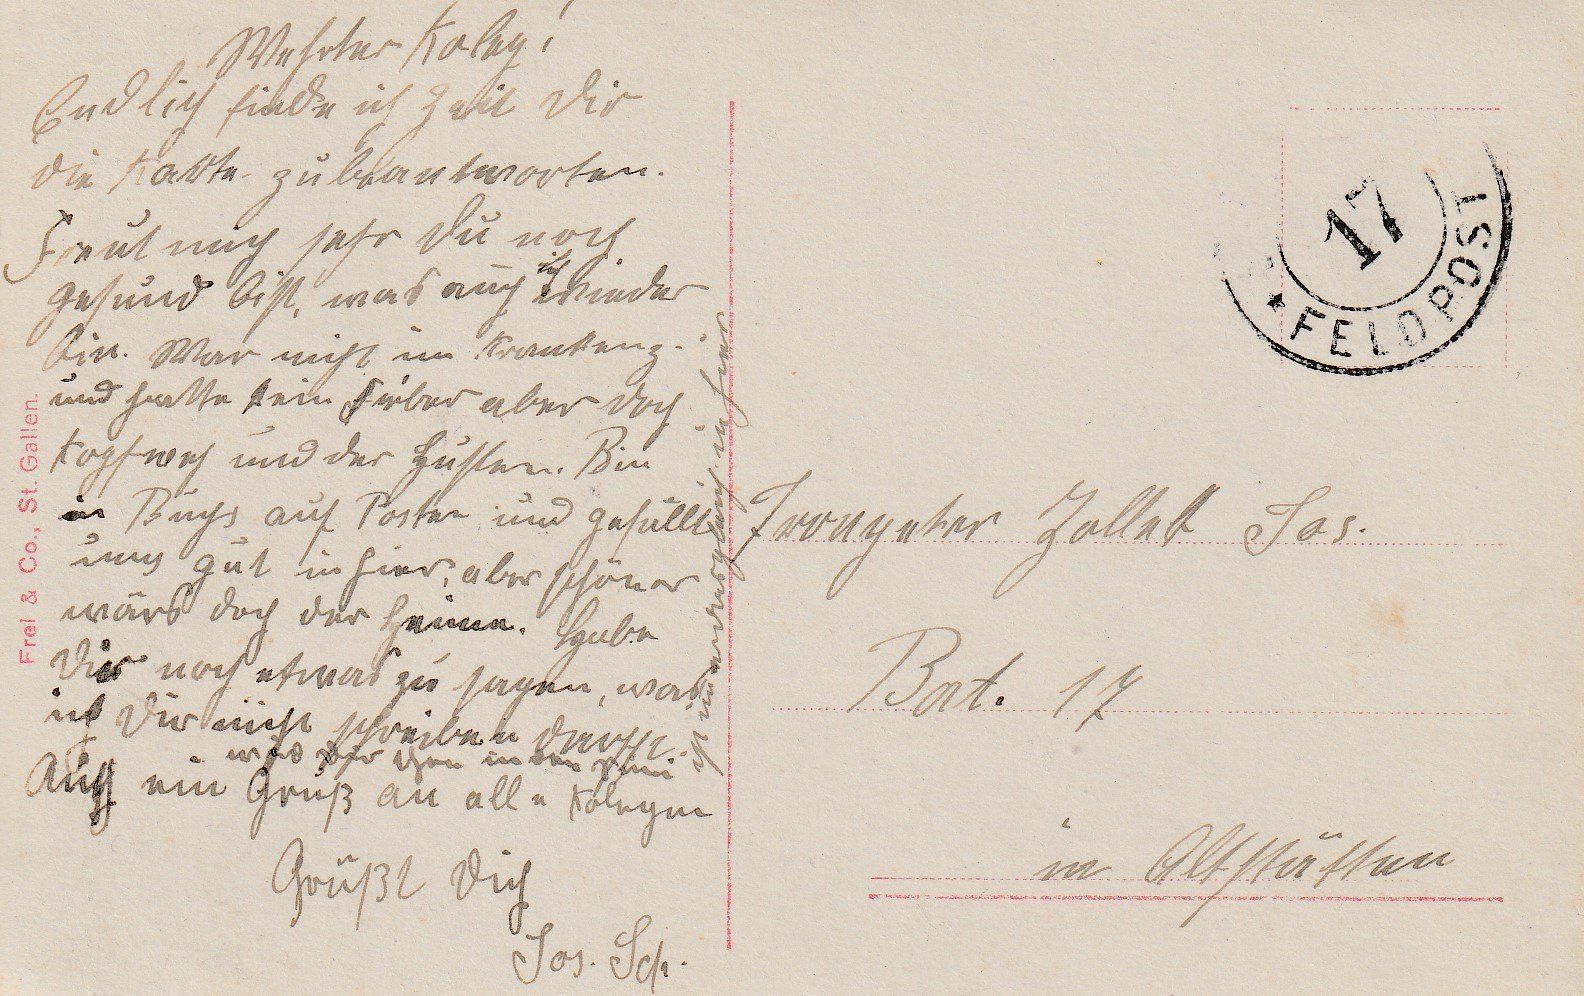 Wehrter Koleg!
Endlich finde ich Zeit Dir
die Karte zubeantworten.
Freut mich sehr Du noch
gesund bist, was auch ich wieder
bin. War nicht im Krankenz.
und hatte kein Fieber aber doch
Kopfweh und der Husten. Bin
in Buchs auf Posten und gefällt
uns gut in hier, aber schöner
wärs doch der Heime. Habe
Dir noch etwas zu sagen, was
ich Dir nicht schreiben darf
was Dir in
Auch ein Gruß an alle Kolegen
Grüßt Dich
Jos. Sch.
in hier
Trompeter Zollet Jos.
Bat. 17
in Altstätten
17
* FELDPOST
Frei & Co., St. Gallen.